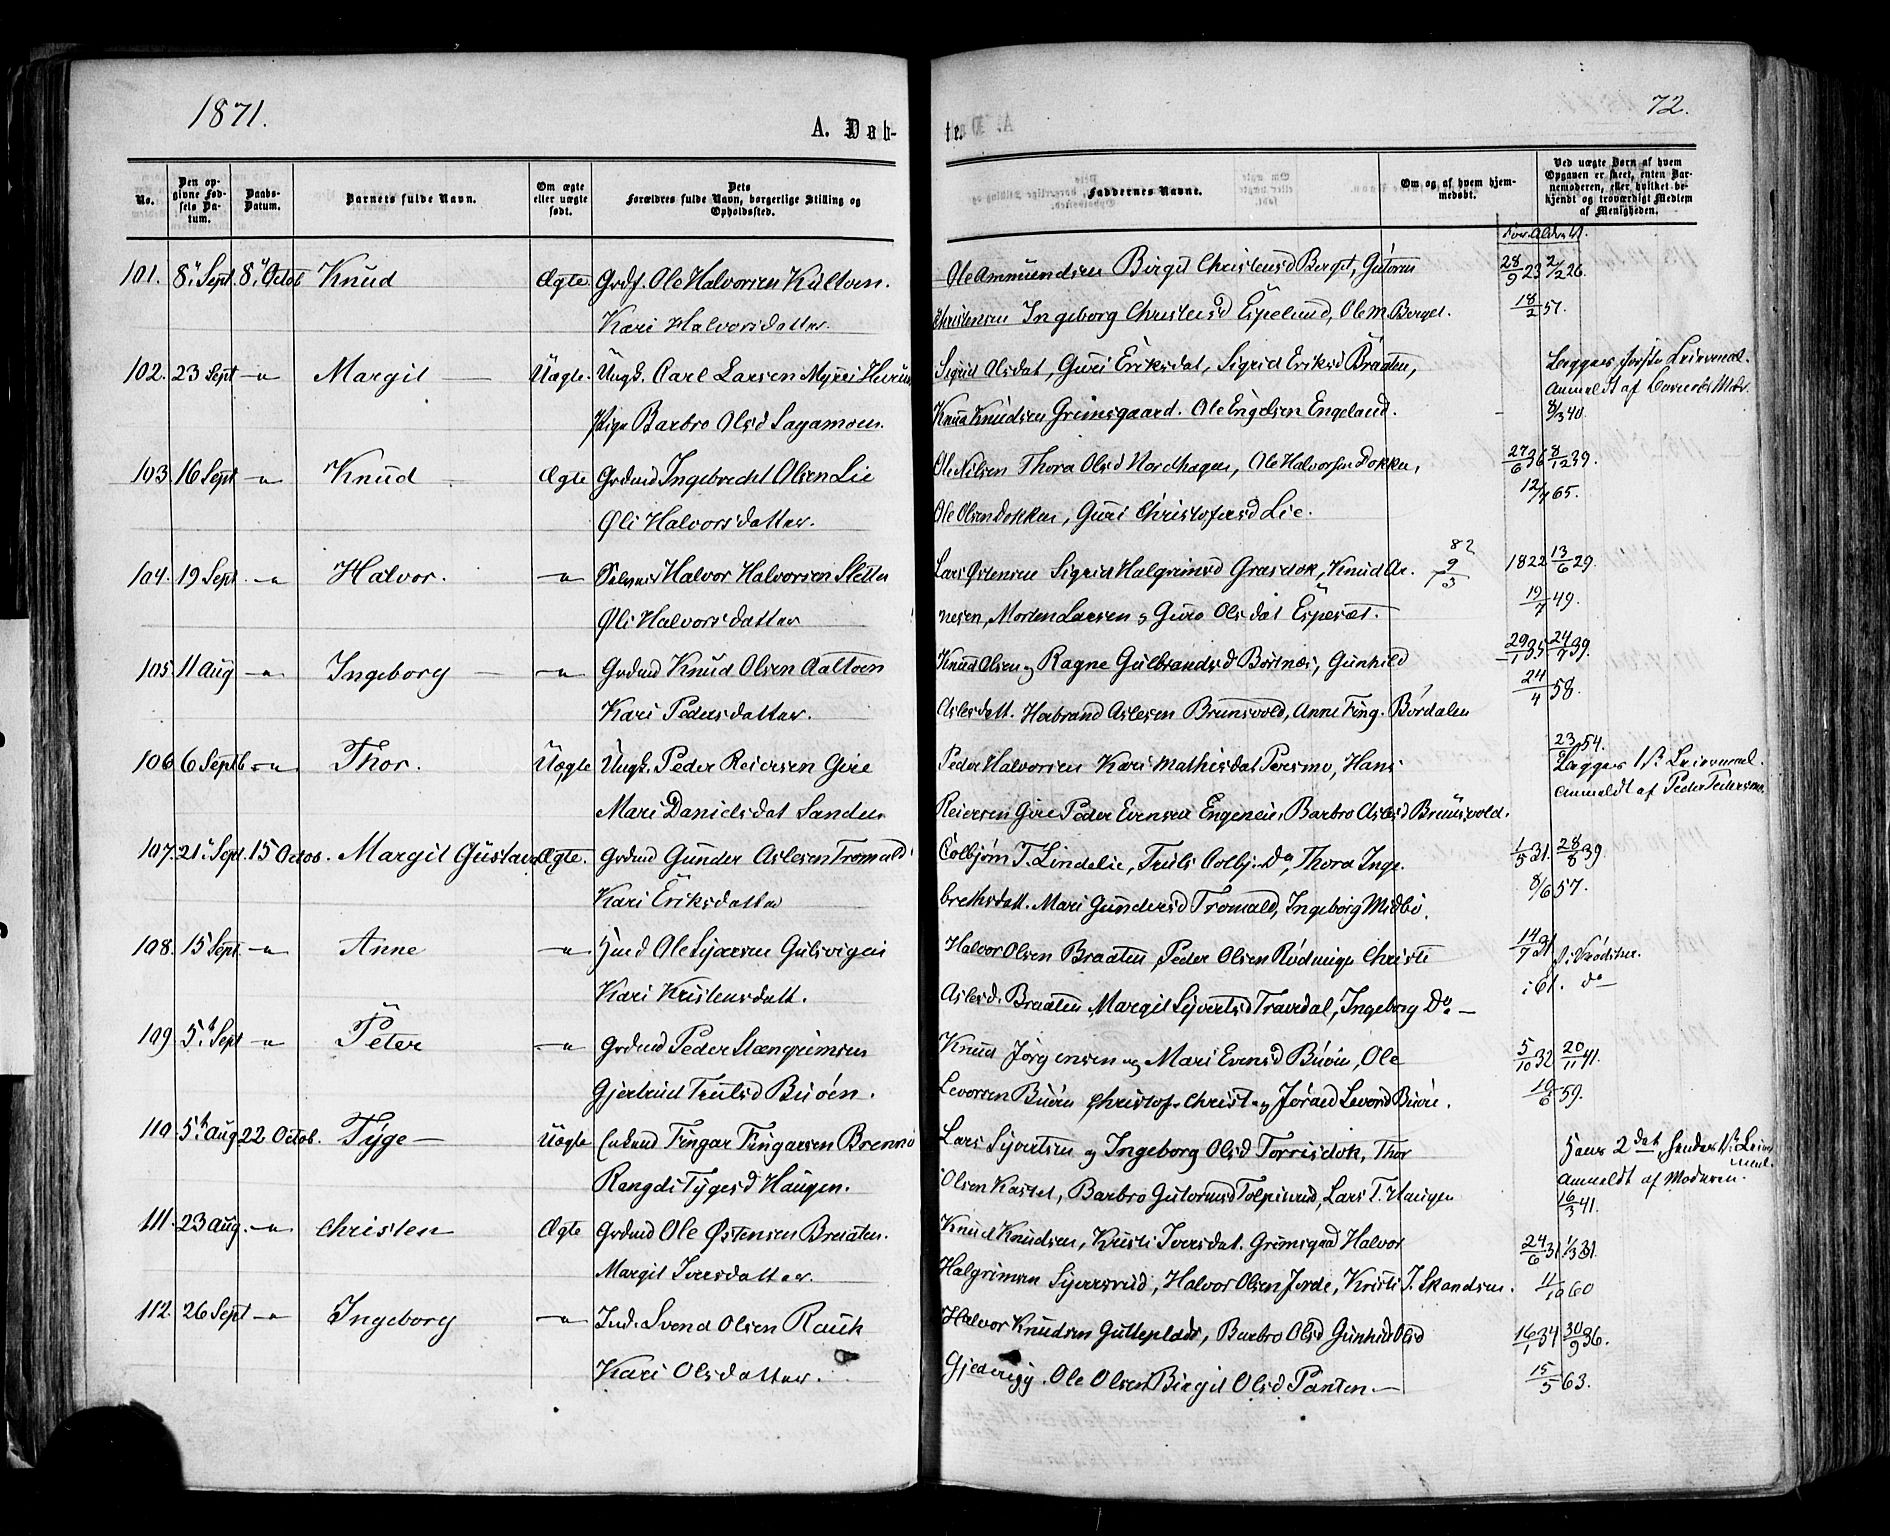 1871.
A. Døb-
te.
72.
No.
Den op-
givne Fød-
sels Da-
tum.
Daabs-
Datum.
Barnets fulde Navn.
Om ægte
eller uægte
født.
Dets
Forældres fulde Navn, borgerlige Stilling og
Opholdssted.
Faddernes Navne.
Om og af hvem hjem-
medøbt.
Ved uægte Børn af hvem
Opgaven er skeet, enten Bar-
nemoderen, eller hvilket be-
kjendt og troværdigt Medlem
af Menigheden.
101. 8. Sept. 8. Octob Knud Ægte Grdf. Ole Halvorsen Kultoen. Ole Ammundsen Birgit Christensd Berget, Gutorm 28/9 23 2/2 26.
Kari Halvorsdatter. Christensen Ingeborg Christensd Espelund, Ole M Berget. 18/2 51.
102. 23 Sept -"- Margit Uægte. Ungk. Carl Larsen Sigrid Olsdat, Guri Eriksdat, Sigrid Eriksd Braaten, første Leiermaal.
Pige Barbro Olsd Sagamoen. Knud Knudsen Grimsgaard. Ole Engelsen Engelund. Anmeldt af Barnets Moder. 8/3 40.
103. 16 Sept -"- Knud Ægte Grdmd Ingebrecht Olsen Lie Ole Nilsen Thora Olsd Nordhagen, Ole Halvorsen Dokken, 27/6 36 8/12 39.
Øli Halvorsdatter. Ole Olsen Dokken, Guri Christofersd Lie. 12/7 65.
104. 19 Sept. -"- Halvor. -"- Halvor Halvorsen Sletto Lars Østensen Sigrid Halgrimsd Grasdok, Knud Ar- 1822 13/6 29.
Øli Halvorsdatter nesen, Morten Larsen og Guro Olsdat Espeset. 19/7 49.
105. 11 Aug -"- Ingeborg -"- Grdmd Knud Olsen Aaltoen Knud Olsen og Ragne Gulbrandsd Børtnes, Gunhild 29/1 35 24/7 39.
Kari Pedersdatter. Aslesdatt. Herbrand Aslesen Brunsvold, Anne Fing. Børdalen 24/4 58.
106 6 Septb -"- Thor. Uægte Ungk. Peder Reiersen Gire Peder Halvorsen Kari Mathisdat Persmo, Hans 23/9 54. Begges 1ste Leiermaal.
Mari Danielsdat Sanden Reiersen Gire Peder Evensen Engeneie, Barbro Aslesd Brunsvold. Anmeldt af Peder Persmo.
107. 21. Sept. 15 Octob. Margit Gustava Ægte. Grdmd Gunder Aslesen Tromald Colbjørn T. Lindelie, Truls Colbj. Do, Thora Inge- 1/5 31. 28/8 39.
Kari Eriksdatter brethsdatt. Mari Gundersd Tromald, Ingeborg Midbø. 8/6 57.
108. 15 Sept. -"- Anne -"- Ole Syversen Gulsvigeie Halvor Olsen Braaten, Peder Olsen Rødningen Christi 14/7 21 i Krødsher.
Kari Kristensdatt. Aslesd. Braaten, Margit Syvertsd Traverdal, Ingeborg Do — i 61. do
109 5. Sept -"- Peter -"- Grdmd Peder Stengrimsen Knud Jørgensen og Mari Evensd Buøen, Ole 5/10 32 20/11 41.
Gjertrud Trulsd Buøen. Levorsen Buøen Christof. Christ. og Jøraed Levorsd Buøen. 10/6 59.
110. 5. Aug 22 Octob. Tyge — Uægte Enkmd Fingar Fingarsen Brenno Lars Syvertsen og Ingeborg Olsd Torrisdok, Thor Hans 2det, hendes 1ste Leier-
maal.
Rangdi Tygesd Haugen. Olsen Kastet, Barbro Gutormsd Tolpinrud, Lars T. Haugen Anmeldt af Moderen. 16/3 41.
111. 23 Aug. -"- Christen Ægte Grdmd Ole Østensen Breiaten. Knud Knudsen, Kristi Iversdat. Grimsgaad Halvor 24/6 31 1/3 31.
Margit Iversdatter. Halgrimsen Syversrud, Halvor Olsen Jorde, Kristi I. Skandsen. 11/10 60
112. 26 Sept -"- Ingeborg -"- Ind. Svend Olsen Rauk Halvor Knudsen Gulleplads, Barbro Olsd Gunhild Olsd 16/1 34 30/9 36.
Kari Olsdatter. Ole Olsen Birgit Olsd Panten.— 15/5 63.